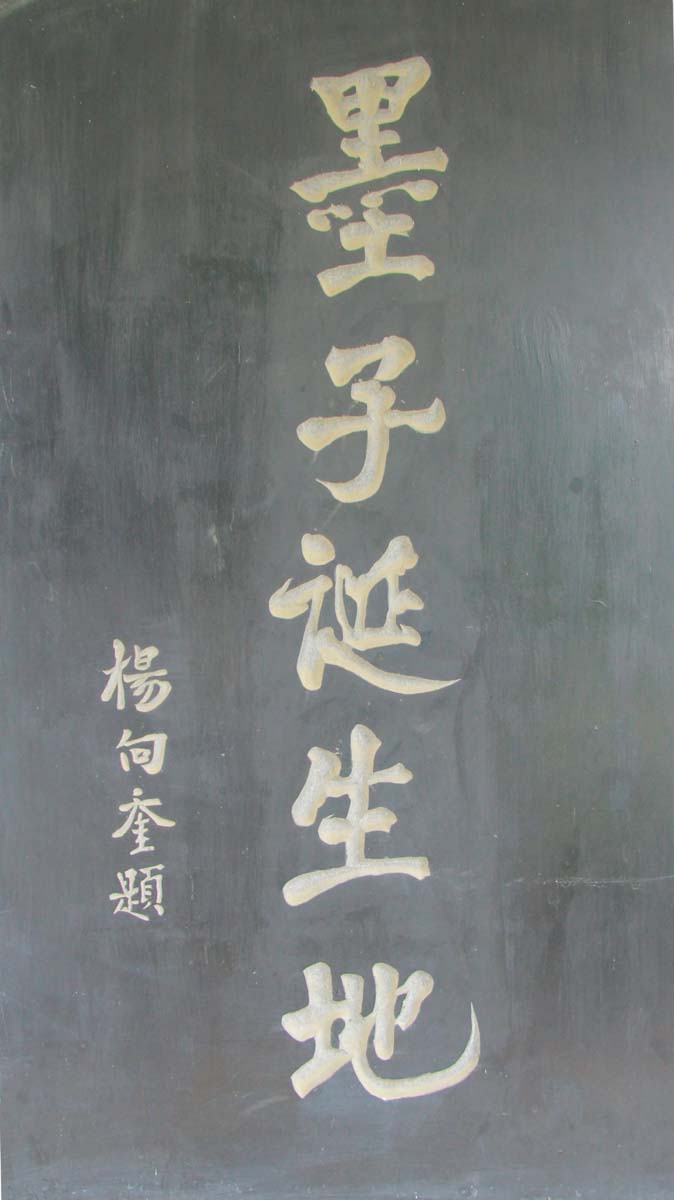 墨子诞生地
楊向奎題